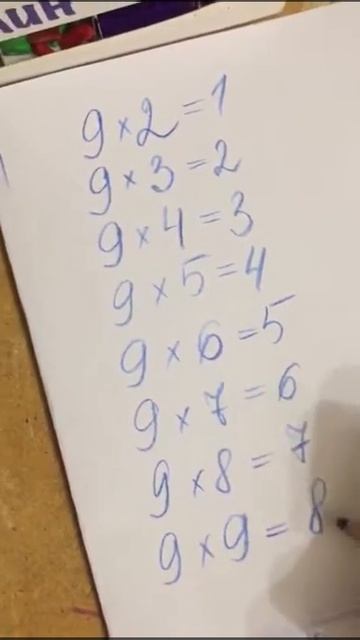 9×2=1
9×3=2
9×4=3
9×5=4
9×6=5
9×7=6
9×8=7
9×9=8